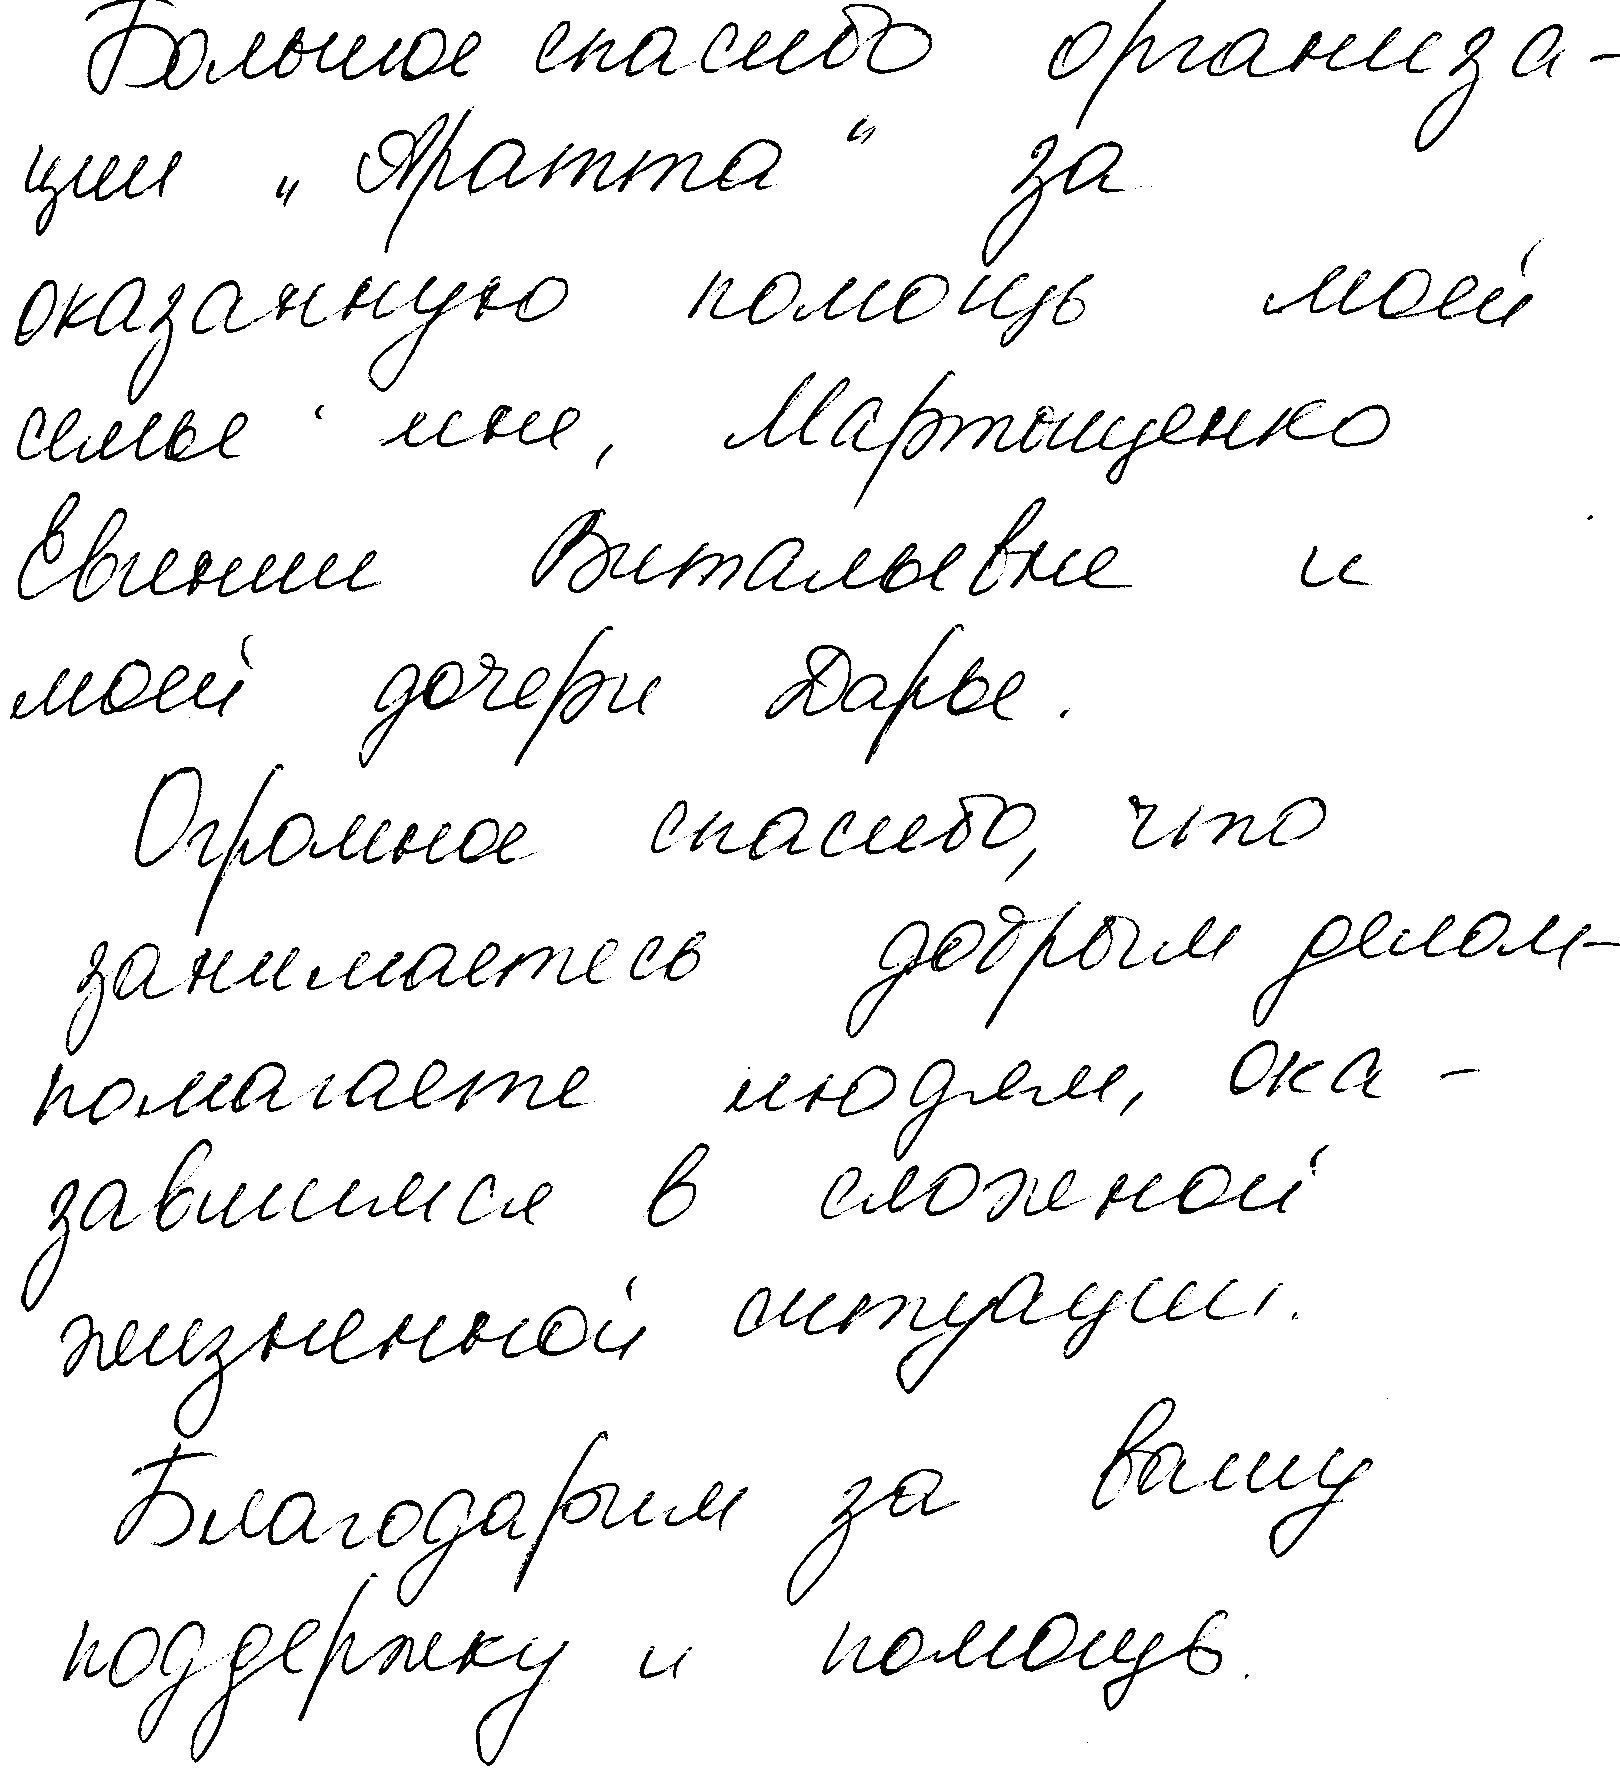 Большое спасибо организа-
ции „Аратта“ за
оказанную помощь моей
семье мне, Мартыщенко
Евгении Витальевне и
моей дочери Дарье.
Огромное спасибо, что
занимаетесь добрым делом-
помагаете людям, ока-
завшимся в сложной
жизненной ситуации.
Благодарим за вашу
поддержку и помощь.